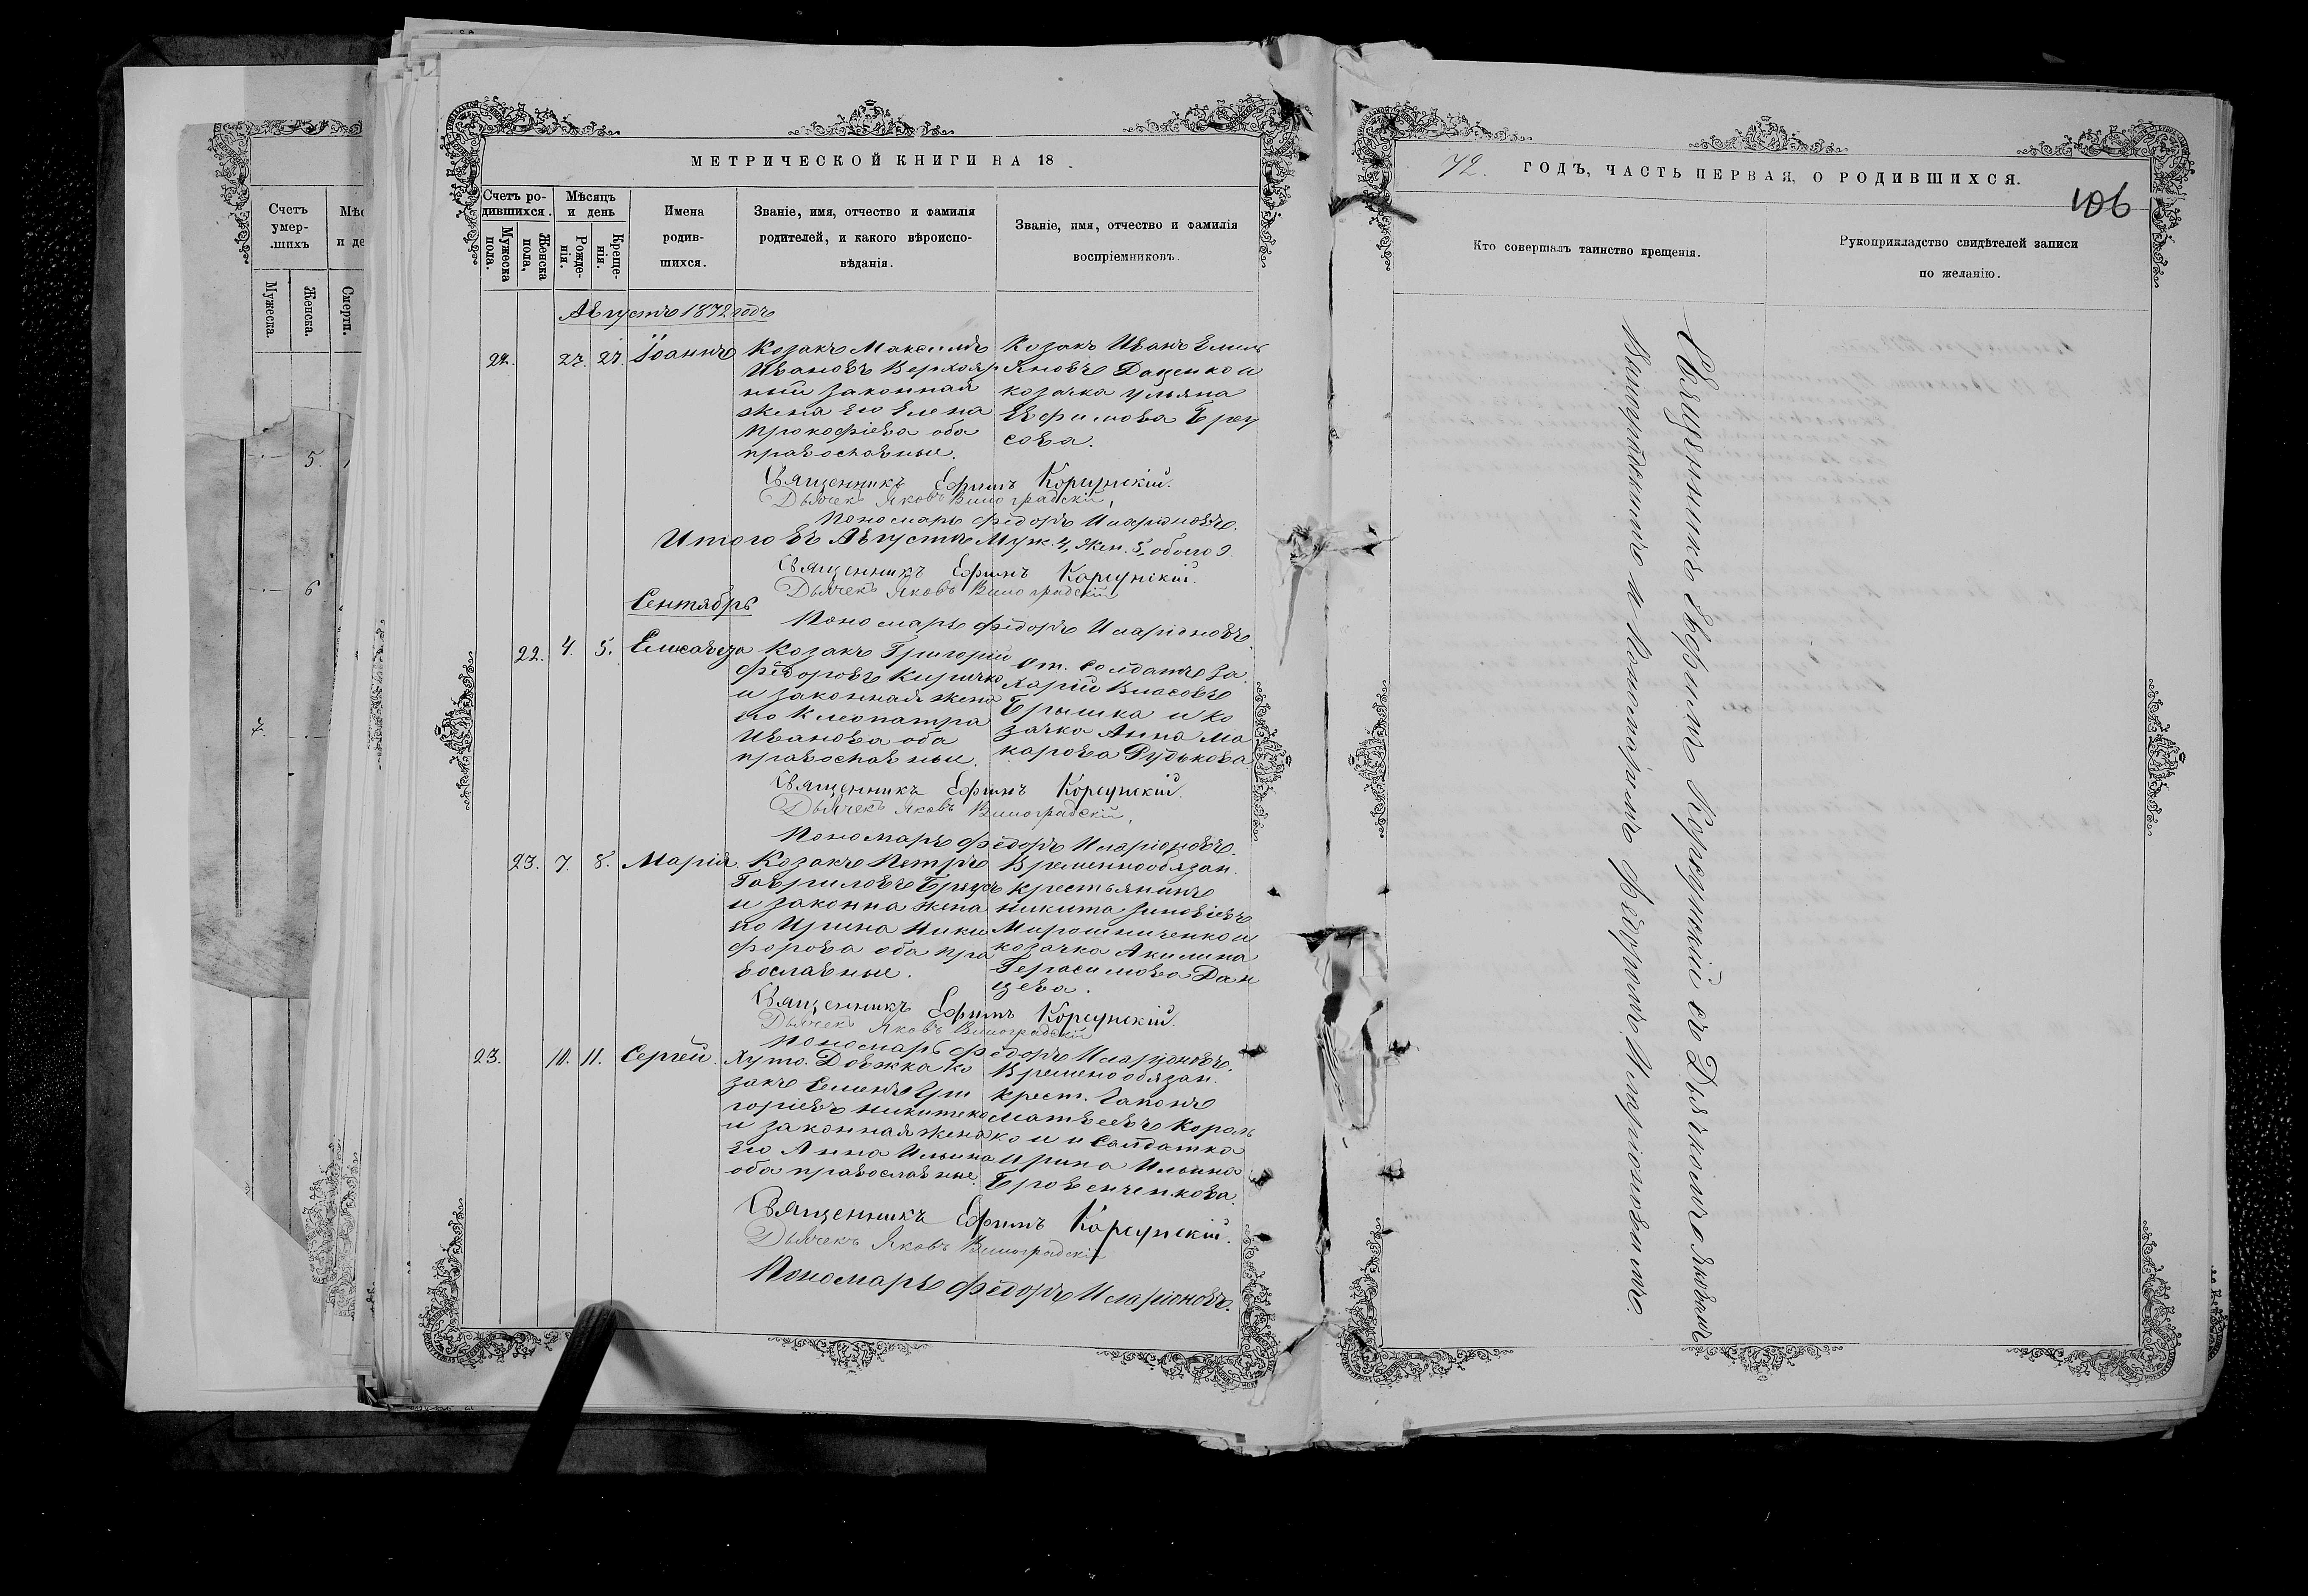 МЕТРИЧЕСКОЙ КНИГИ НА 18
Счетъ ро-
дившихся.
Мужеска
пола.
Женска
пола,
Мѣсяцъ
и день
Рожде-
нія.
Креще-
нія.
Имена
родив-
шихся.
Званіе, имя, отчество и фамилія
родителей, и какого вѣроиспо-
вѣданія.
Званіе, имя, отчество и фамилія
воспріемниковъ.
Августъ 1872 годъ
22. 27. 27. Іоаннъ
Козакъ Максимъ
Ивановъ Верхояр
ный законная
жена его Елена
Прокофіева оба
православные.
Козакъ Иванъ Емель
яновъ Даценко и
козачка Ульяна
Ефимова Брус
сова.
Священникъ Ефимъ Корсунскій.
Дьячекъ Яковъ Виноградскій,
Пономарь Федоръ Иларіоновъ.
Итого въ Августѣ Муж. 4, Жен. 5, обоего 9.
Священникъ Ефимъ Корсунскій.
Дьячекъ Яковъ Виноградскій
Пономарь Федоръ Иларіоновъ.
Сентябрь
22. 4. 5. Елисавета
Козакъ Григорій
Федоровъ Киричко
и законная жена
его Клеопатра
Иванова оба
православные.
От. солдатъ За
харій Власовъ
Брышка и ко
зачка Анна Ма
карова Рудькова
Священникъ Ефимъ Корсунскій.
Дьячекъ Яковъ Виноградскій,
Пономарь Федоръ Иларіоновъ.
23. 7. 8. Марія.
Козакъ Петръ
Гавриловъ Брусъ
и законна жена
его Ирина Ники
форова оба пра
вославные.
Временнообязан.
крестьянинъ
Никита Зиновіевъ
Мирошниченко и
козачка Акилина
Герасимова Дан
цева.
Священникъ Ефимъ Корсунскій.
Дьячекъ Яковъ Виноградскій
Пономарь Федоръ Иларіоновъ.
23. 10. 11. Сергей.
Хуто. Довжка ко
закъ Семенъ Гри
горіевъ Никитеко
и законная жена
его Анна Ильина
оба православные.
Времено обязан.
крест. Гапонъ
Матвеевъ Король
ко и и Салдатка
Ирина Ильина
Бровенченкова.
Священникъ Ефимъ Корсунскій.
Дьячекъ Яковъ Виноградскій
Пономарь Федоръ Иларіоновъ.
72. ГОДЪ, ЧАСТЬ ПЕРВАЯ, О РОДИВШИХСЯ.
106
Кто совершалъ таинство крещенія.
Рукоприкладство свидѣтелей записи
по желанію.
Священникъ Ефимъ Корсунскій съ Дьячкомъ Яковомъ
Виноградскимъ и Пономаремъ Федоромъ Иларіоновымъ.
Счетъ
умер-
шихъ
Мужеска.
Женска.
Смерти.
5.
6
7.